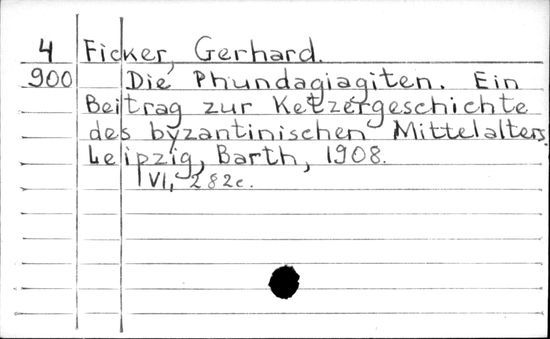 4 Ficker, Gerhard.
900 Die Phundagiagiten. Ein
Beitrag zur Ketzergeschichte
des byzantinischen Mittelalters.
Leipzig, Barth, 1908.
VI, 282c.